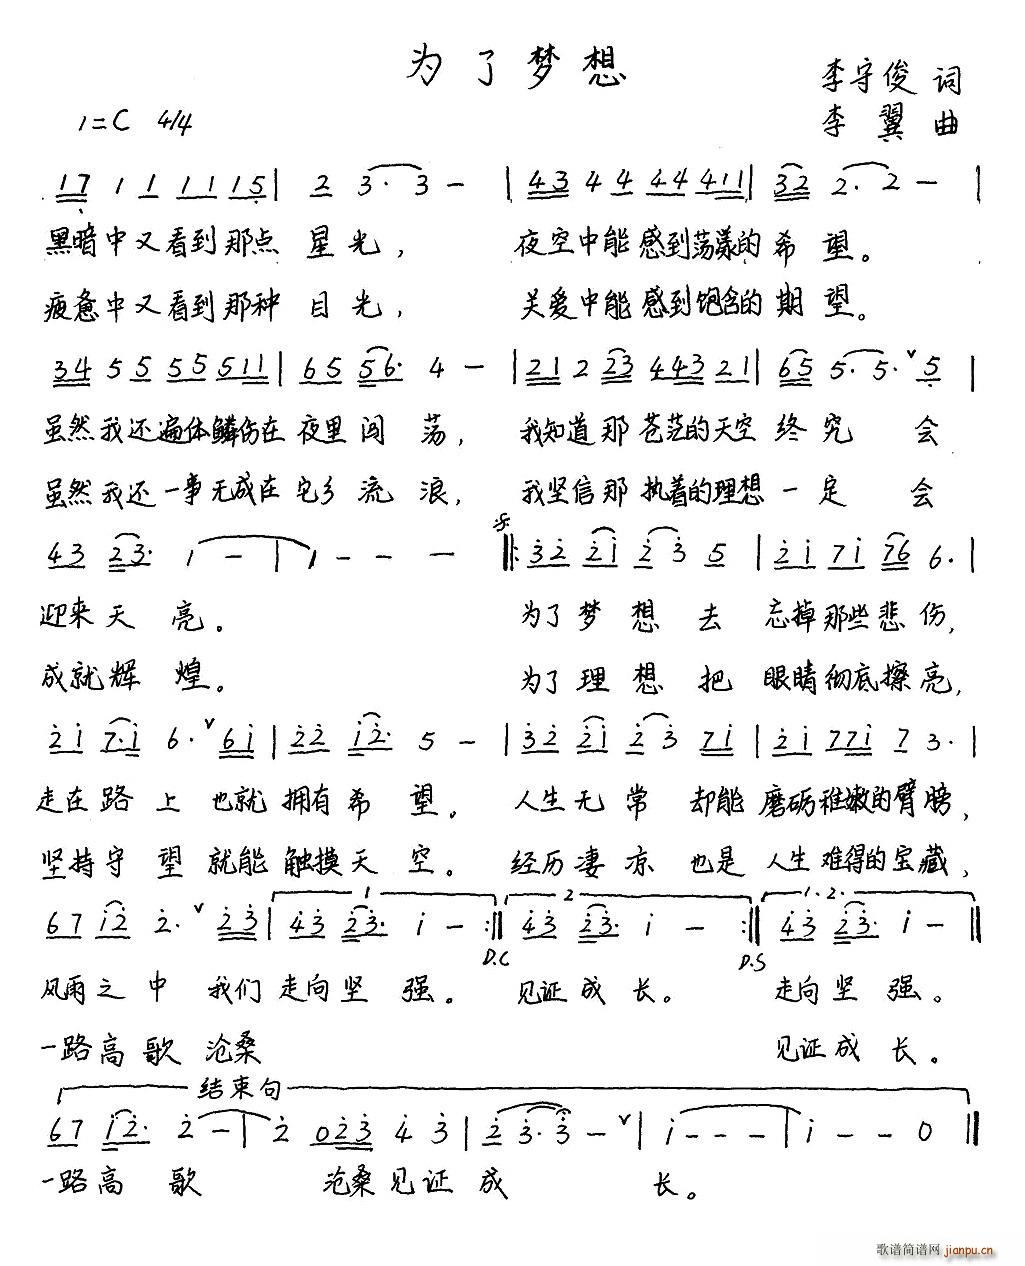 为了梦想
李守俊 词
1=C 4/4
李翼 曲
17 1 1 1 1 1 5 | 2 3· 3 - | 43 4 4 44 411 | 32 2· 2 - |
黑暗中又看到那点 星光， 夜空中能感到荡漾的希望。
疲惫中又看到那种 目光， 关爱中能感到饱含的期望。
34 5 5 55 511 | 65 56· 4 - | 21 2 23 443 21 | 65 5· 5· ∨ 5 |
虽然我还遍体鳞伤在 夜里闯荡， 我知道那苍茫的天空 终究 会
虽然我还一事无成在 它乡流浪， 我坚信那执着的理想 一定 会
43 23· 1 - | 1 - - - ‖: 32 21 2 3 5 | 21 71 76 6· |
迎来天亮。 为了梦想去 忘掉那些悲伤，
成就辉煌。 为了理想把 眼睛彻底擦亮，
21 7·1 6· ∨ 61 | 22 12· 5 - | 32 21 2 3 71 | 21 771 7 3· |
走在路上 也就 拥有希望。 人生无常 却能 磨砺稚嫩的臂膀，
坚持守望 就能 触摸天空。 经历凄凉 也是 人生难得的宝藏，
1 2 1.2
67 12 2· ∨ 23 | 43 23· 1 - :‖ 43 23· 1 - :‖ 43 23· 1 - ‖
D.C D.S
风雨之中 我们 走向坚强。 见证成长。 走向坚强。
一路高歌 沧桑 见证成长。
结束句
67 12· 2 - | 2 023 4 3 | 2 3·3 - ∨ | 1 - - - | 1 - - 0 ‖
一路高歌 沧桑见证成 长。
歌谱简谱网 jianpu.cn